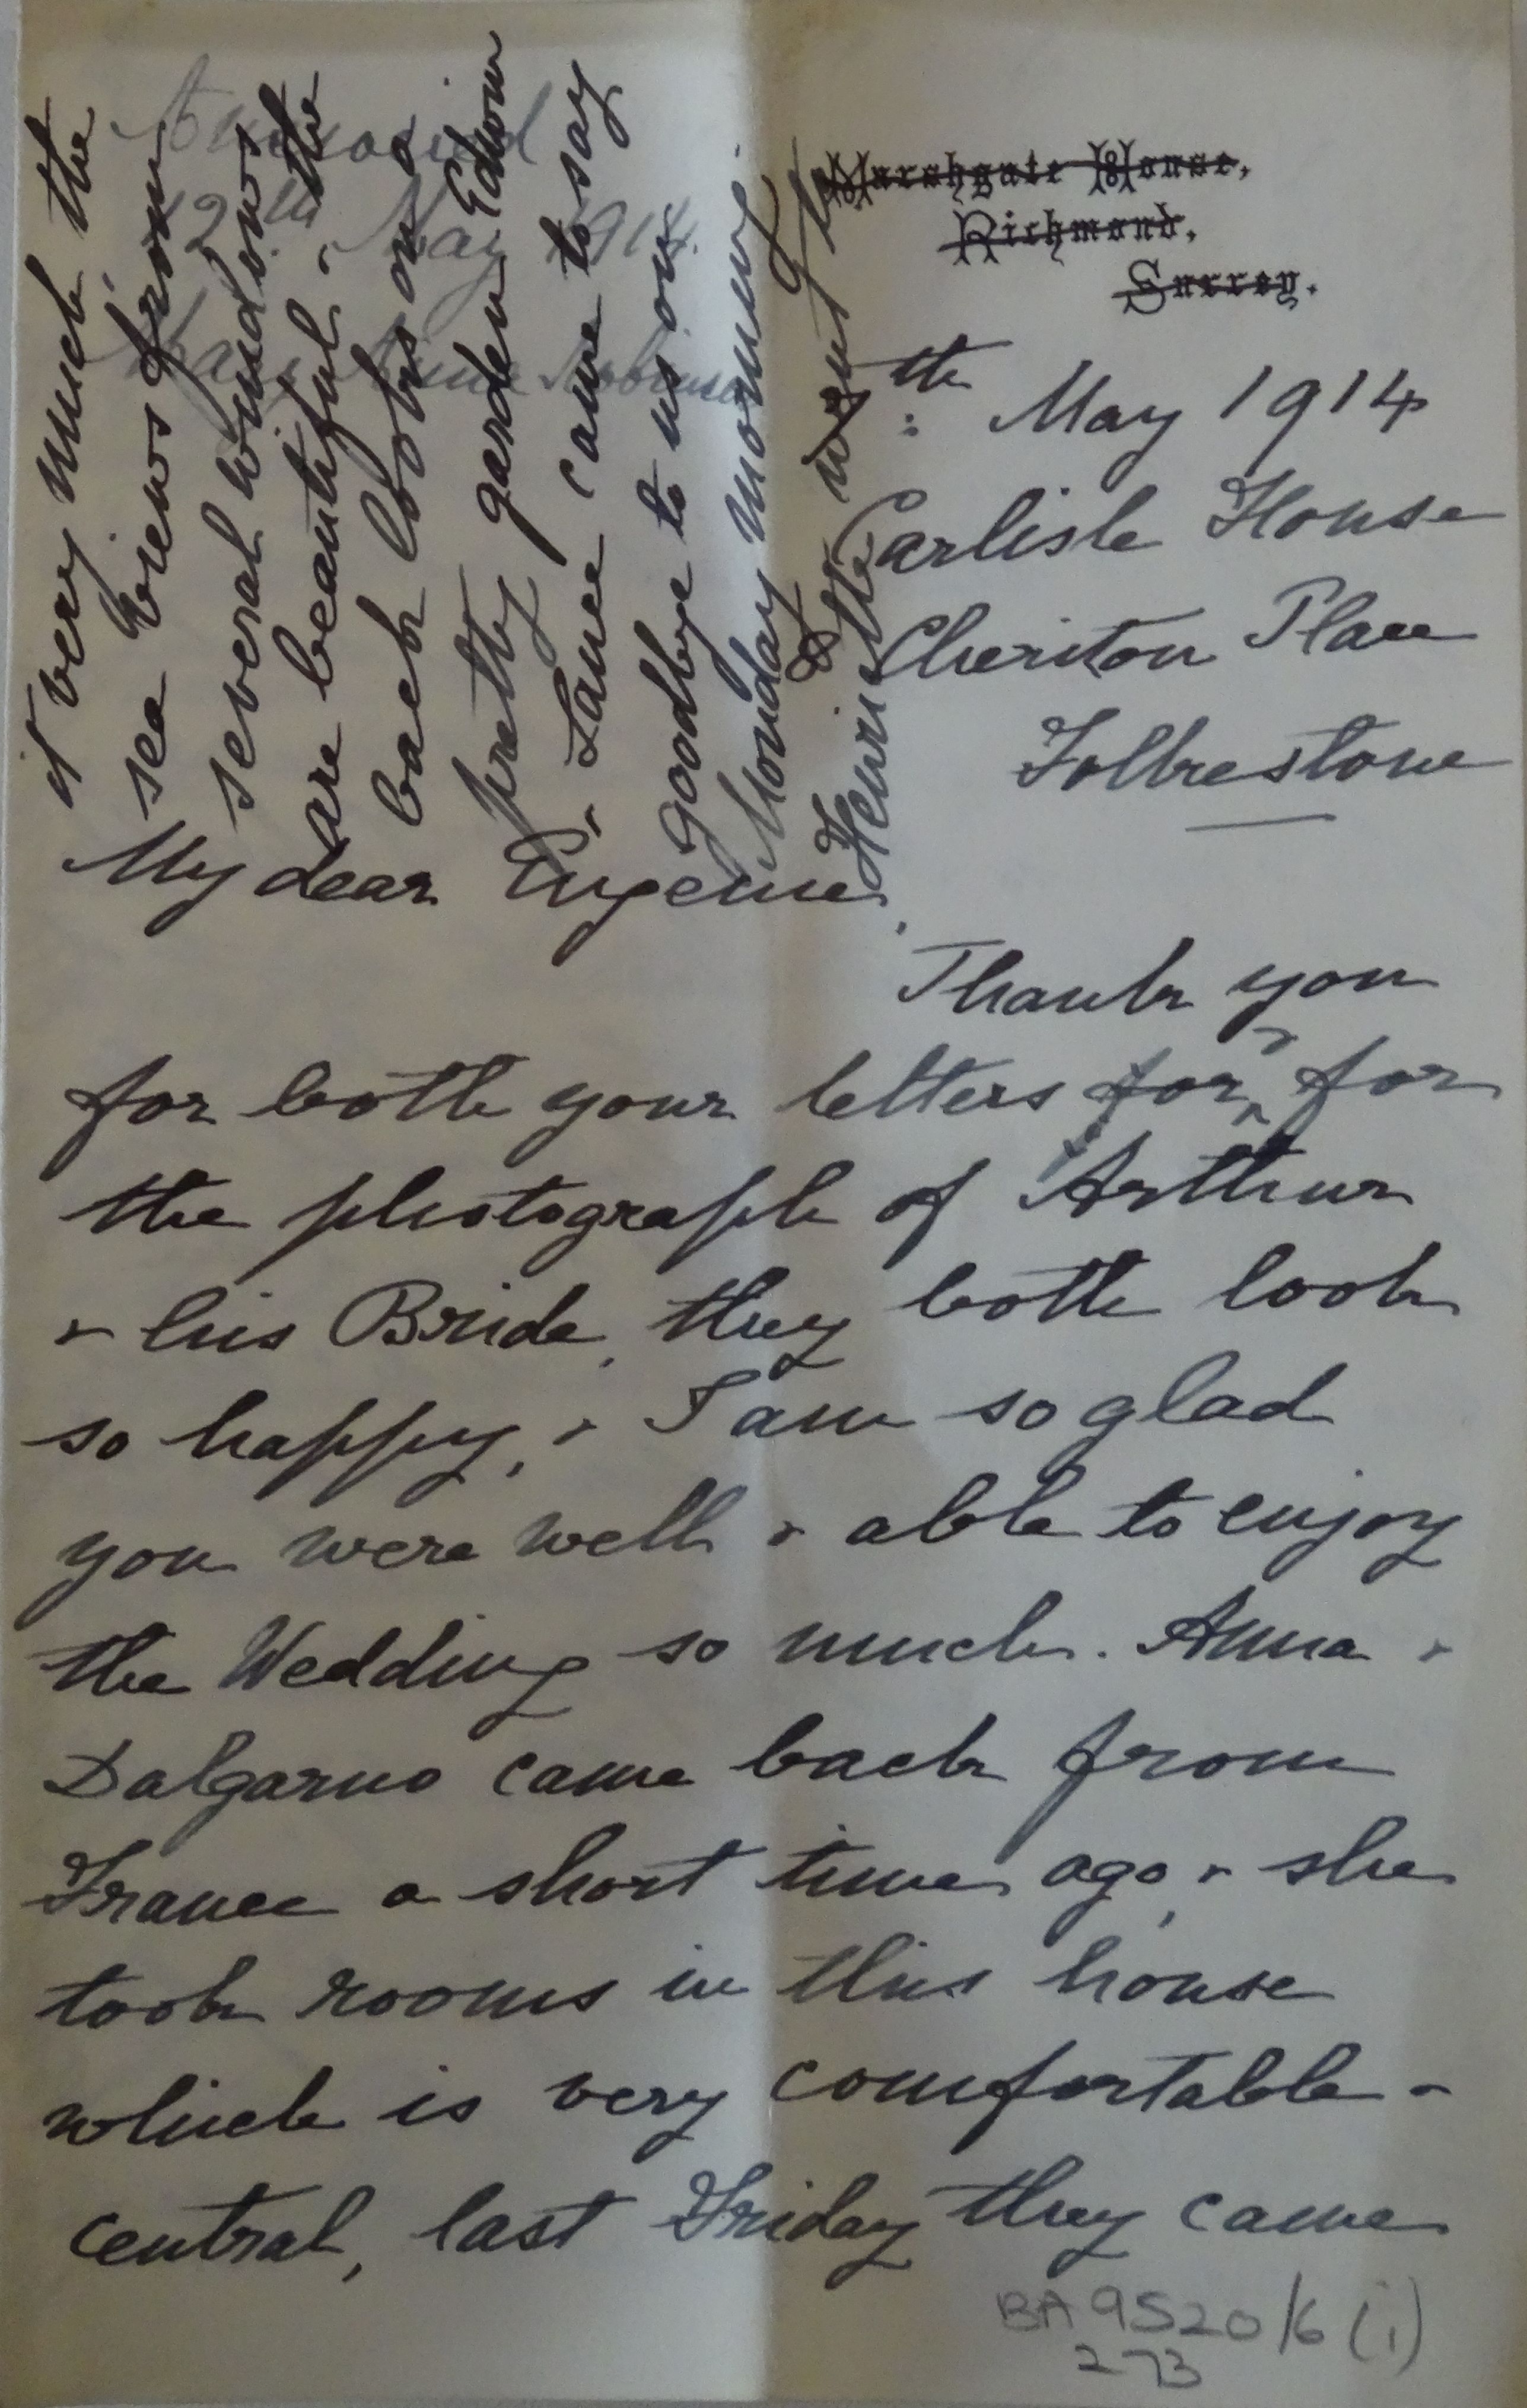 Marshgate House,
Richmond,
Surrey.
th May 1914
Carlisle House
Cheriton Place
Folkestone
My dear Eugenie
Thank you
for both your letters for, for
the photograph of Arthur
& his Bride, they both look
so happy, & I am so glad
you were well & able to enjoy
the Wedding so much. Anna &
Dalgarno came back from
France a short time ago, & she
took rooms in this house
which is very comfortable &
central, last Friday they came
it very much the
sea views from
several windows
are beautiful & the
back looks on a
pretty garden Edwin
& Lance came to say
goodbye to us on
Monday morning
Henrietta went to
Answered
12th May 1914
BA 9520/6 (i)
273